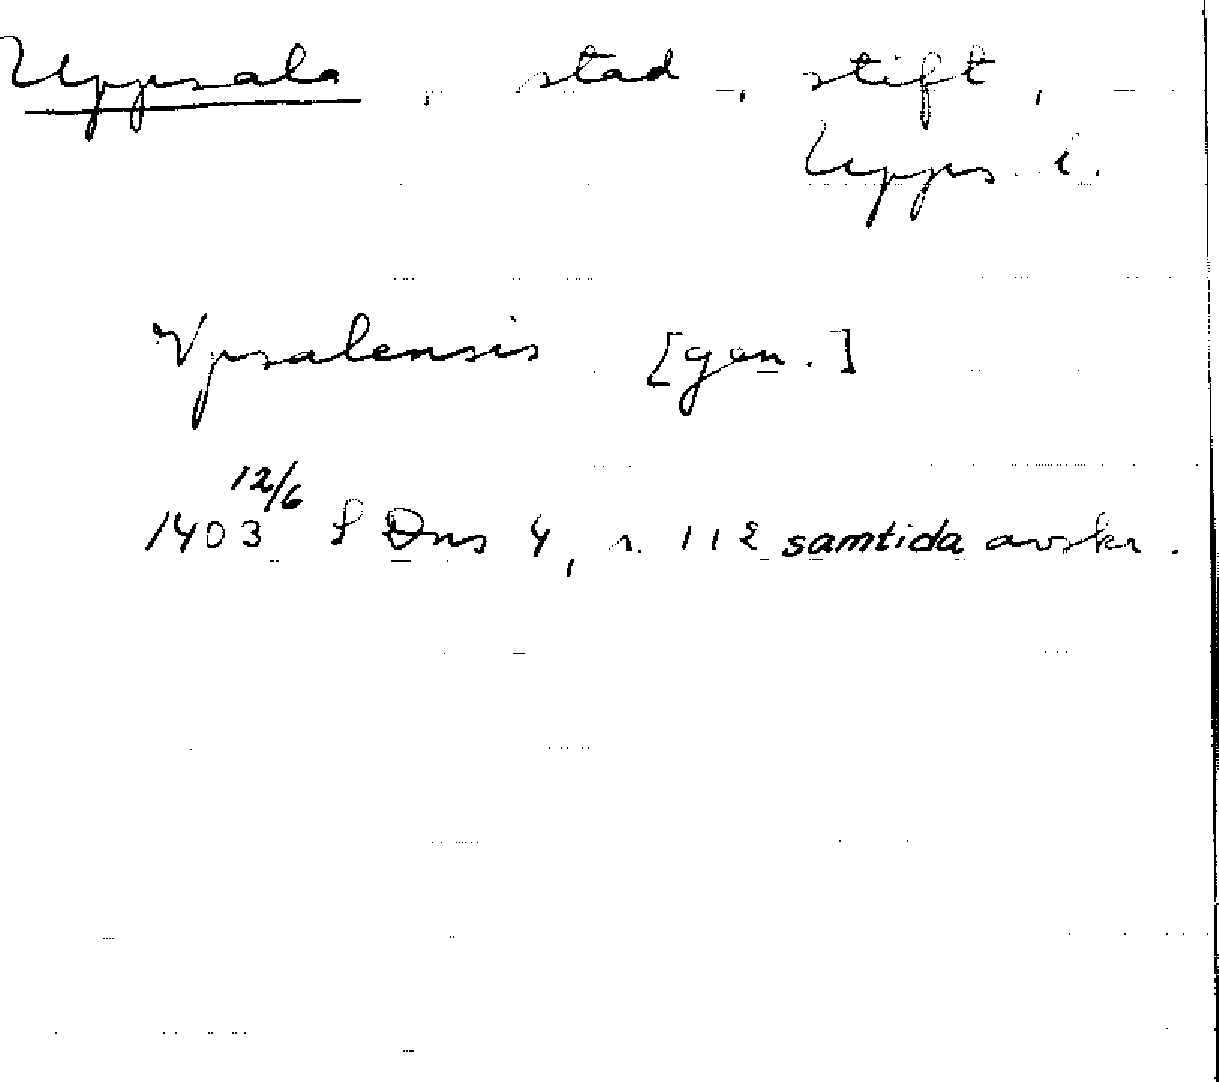 Uppsala, stad, stift,
Upps. l.
Vpsalensis [gen.]
1403 12/6 SDns 4, s. 112 samtida avskr.